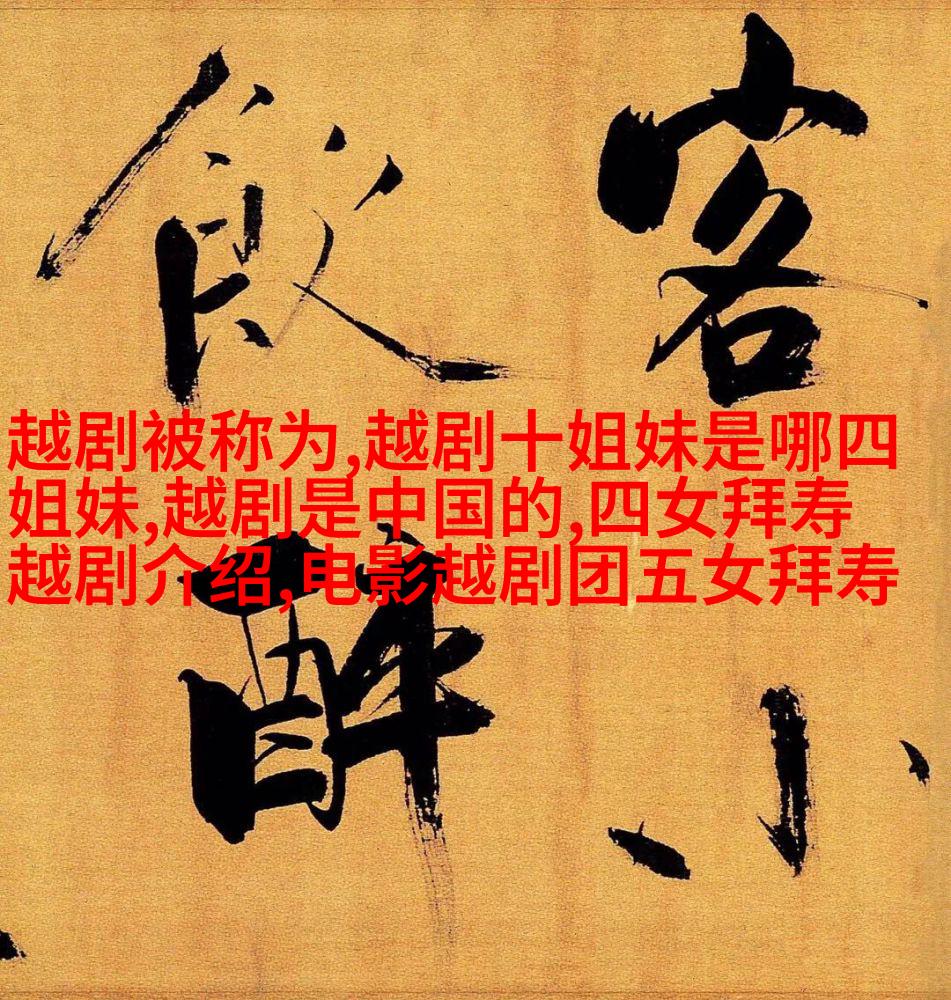 客小
飲醉
越剧被称为,越剧十姐妹是哪四
姐妹,越剧是中国的,四女拜寿
越剧介绍,电影越剧团五女拜寿